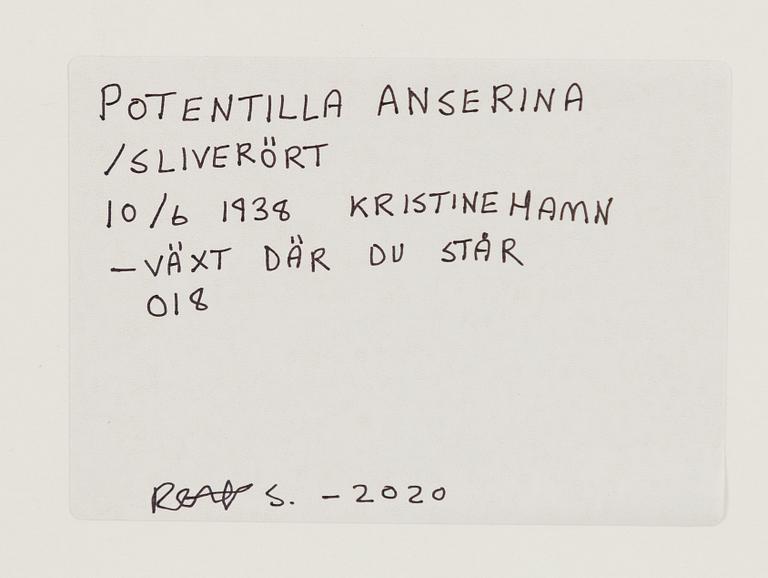 POTENTILLA ANSERINA
/SLIVERÖRT
10/6 1938 KRISTINEHAMN
–VÄXT DÄR DU STÅR
018
S. – 2020